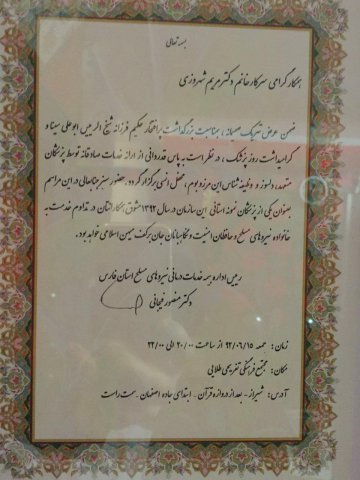 بسمه تعالی
همکار گرامی سرکار خانم دکتر مریم شهروزی
ضمن عرض تبریک صمیمانه، بمناسبت بزرگداشت پرافتخار حکیم فرزانه شیخ الرییس ابوعلی سینا و
گرامیداشت روز پزشک، در نظر است به پاس قدردانی از ارائه خدمات صادقانه توسط پزشکان
متعهد، دلسوز و وظیفه شناس این مرز و بوم، محفل انسی برگزار گردد. حضور سبز جنابعالی در این مراسم
بعنوان یکی از پزشکان نمونه استانی این سازمان در سال ۱۳۹۲ مشوق همکارانتان در تداوم خدمت به
خانواده نیروهای مسلح و حافظان امنیت و نگاهبانان جان برکف میهن اسلامی خواهد بود.
رییس اداره بیمه خدمات درمانی نیروهای مسلح استان فارس
دکتر منصور فیجانی
زمان: جمعه ۹۲/۰۶/۱۵ از ساعت ۲۰/۰۰ الی ۲۲/۰۰
مکان: مجتمع فرهنگی تفریحی طلایی
آدرس: شیراز - بعد از دروازه قرآن - ابتدای جاده اصفهان - سمت راست